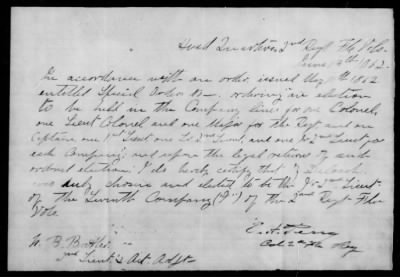 Head Quarters 2nd Regt Fla Vols.
June 1862.
In accordance with an order issued May 1862
entitled Special Order ordering an election
to be held in the Company lines for one Colonel,
one Lieut Colonel and one Major for the Regt and one
Captain one 1st Lieut one 2nd Lieut, and one Jr 2nd Lieut for
each Company; and upon the legal returns of such
ordered election: I do hereby certify that
was duly chosen and elected to be the Jr 2nd Lieut
of the Company of the 2nd Regt Fla
Vols.
E. A. Perry
Col 2nd Fla Reg
W. B.
2nd Lieut & Act Adjt